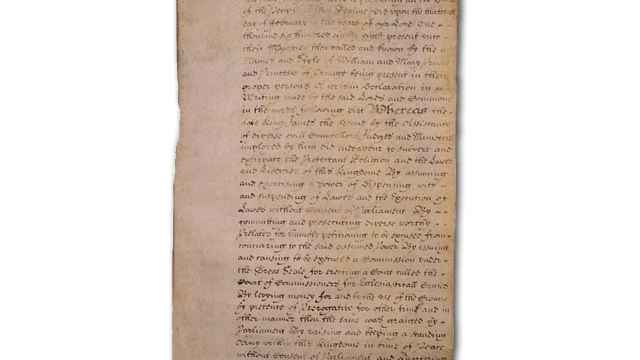 of the People of this Realme did upon the thirteenth
day of February in the yeare of our Lord One
thousand six hundred eighty eight present unto
their Majesties then called and known by the
Names and Stile of William and Mary Prince
and Princesse of Orange being present in their
proper persons A certain Declaration in
Writing made by the said Lords and Commons
in the words following vizt Whereas the
late King James the second by the Assistance
of diverse evill Councellors Judges and Ministers
imployed by him did endeavour to subvert and
extirpate the Protestant Religion and the Lawes
and Liberties of this Kingdome By assuming
and exercising a power of dispensing with
and suspending of Lawes and the Execution of
Lawes without Consent of Parliament By
committing and prosecuting diverse worthy
Prelates for humble petitioning to be excused from
concurring to the said assumed Power By issuing
and causing to be executed a Commission under
the Great Seale for erecting a Court called the
Court of Commissioners for Eclesiasticall Causes
By levying money for and to the use of the Crowne
by pretence of Prerogative for other time and in
other manner then the same was granted by
Parliament By raising and keeping a standing
Army within this Kingdome in time of Peace
without Consent of Parliament and quartering